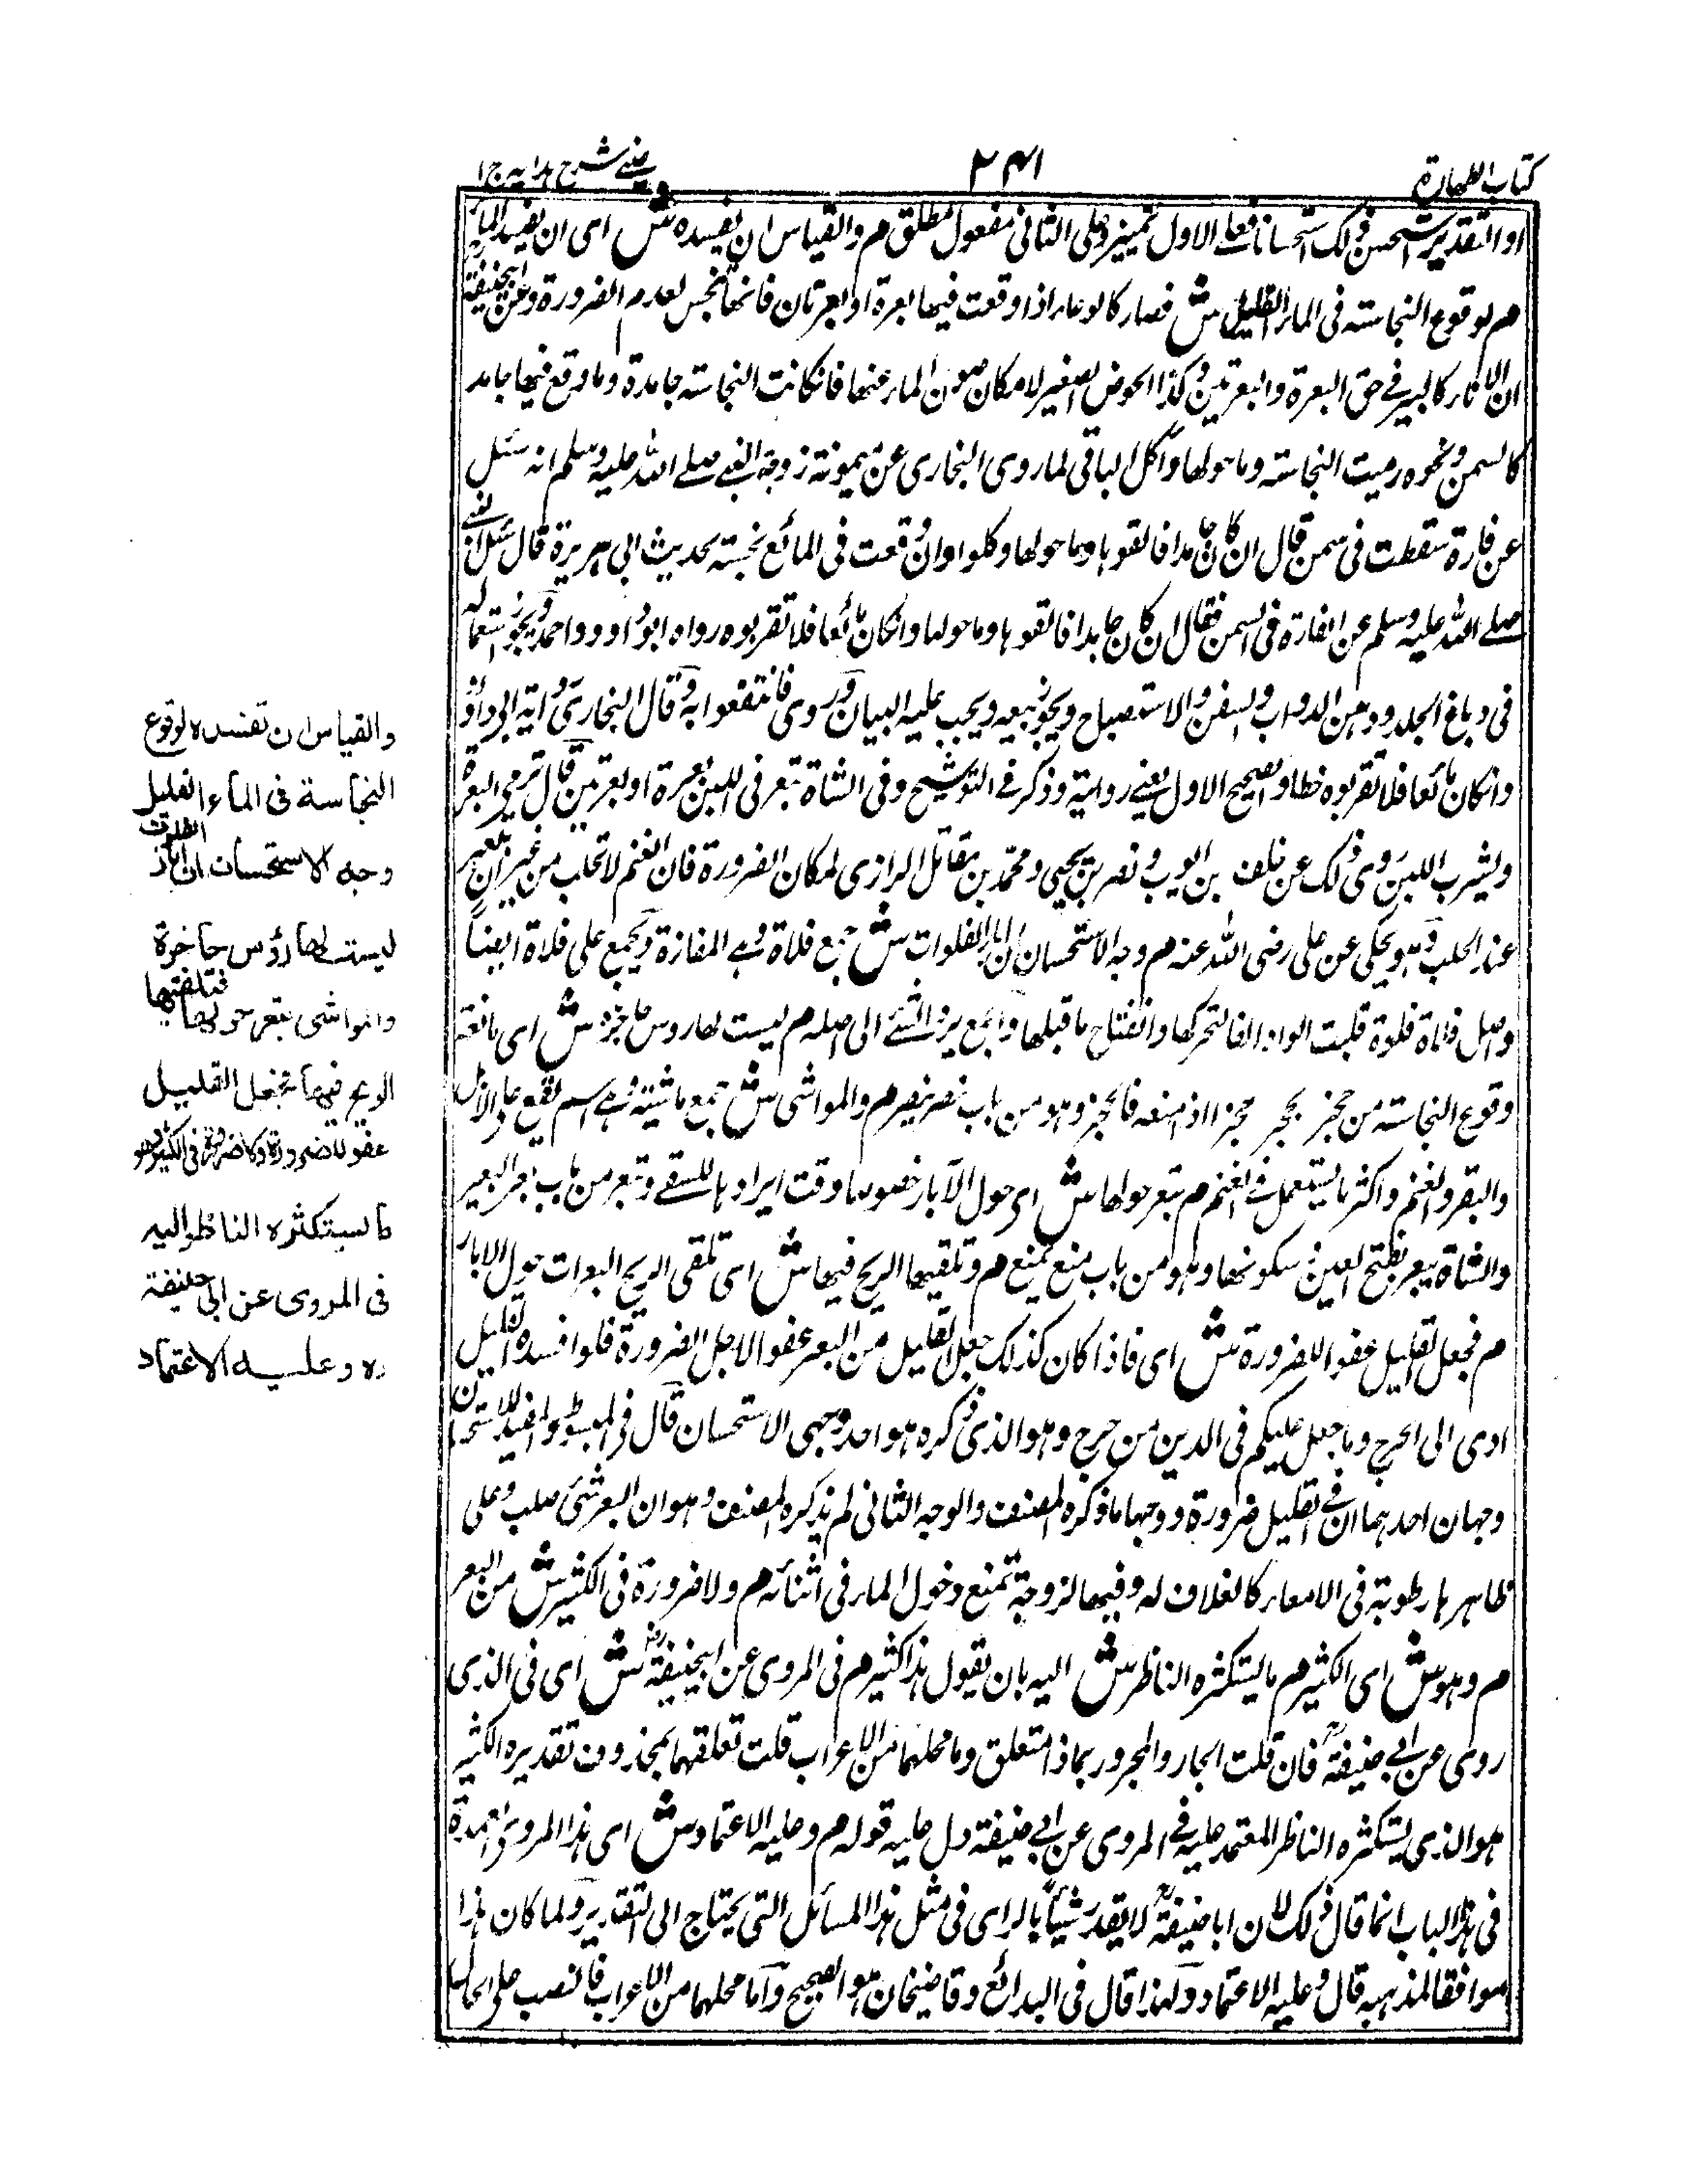 كتاب الطهارة
۲۴۱
عينى شرح هدايه ج ۱
او التقدير استحسن ذلك استحسانا فعلى الاول تمييز وعلى الثانى مفعول مطلق م والقياس ان يفسده ش اى ان يفسد الماء
م لوقوع النجاسته فى الماء القليل ش فصار كالوعاء اذا وقعت فيها بعرة او بعرتان فانها تنجس لعدم الضرورة وعن ابيحنيفة
ان الاناء كالبير فى حق البعرة والبعرتين وكذا الحوض الصغير لامكان صون الماء عنها فان كانت النجاسته جامدة وما وقع فيها جامد
كالسمن ونحوه رميت النجاسته وما حولها واكل الباقى لما روى البخارى عن ميمونة زوجة النبى صلى الله عليه وسلم انه سئل
عن فارة سقطت فى سمن قال ان كان جامدا فالقوها وما حولها وكلوا وان وقعت فى المائع نجسته لحديث ابى هريرة قال سئل النبى
صلى الله عليه وسلم عن الفارة فى السمن فقال ان كان جامدا فالقوها وما حولها وان كان مائعا فلا تقربوه رواه ابو داود واحمد ويجوز استعماله
فى دباغ الجلد ودهن الدواب والسفن والاستصباح ويجوز بيعه ويجب عليه البيان وروى فانتفعوا به وقال البخارى رواية ابى داؤد
وان كان مائعا فلا تقربوه خطا والصحيح الاول يعنى رواية وذكر فى التوشيح وفى الشاة تبعر فى اللبن بعرة او بعرتين قال ترمى البعرة
ويشرب اللبن روى ذلك عن خلف بن ايوب ونصر بن يحيى ومحمد بن مقاتل الرازى لمكان الضرورة فان الغنم لا تحلب من غير ان تبعر
عند الحلب وهو يحكى عن على رضى الله عنه م وجه الاستحسان ان ابار الفلوات ش جمع فلاة وهى المفازة ويجمع على فلاة ايضا
واصل فلاة فلوة قلبت الواو الفا لتحركها وانفتاح ما قبلها والجمع يرد الشئ الى اصله م ليست لها روس حاجزة ش اى مانعة
وقوع النجاسته من حجز يحجز حجزا اذ امنعه فانحجز وهو من باب نصر ينصر م والمواشى ش جمع ماشية وهى اسم يقع على الابل
والبقر والغنم واكثر ما يستعمل فى الغنم م تبعر حولها ش اى حول الآبار خصوصا وقت ايرادها للسقى وتبعر من باب بعر البعير
والشاة يبعر بفتح العين سكونها وهو من باب منع يمنع م وتلقيها الريح فيها ش اى تلقى الريح البعرات حول الابار
م فجعل القليل عفوا للضرورة ش اى فاذا كان كذلك جعل القليل من البعر عفوا لاجل الضرورة فلوا فسده القليل
ادى الى الحرج وما جعل عليكم فى الدين من حرج وهو الذى ذكره هو احد وجهى الاستحسان قال فى المبسوط والمفيد للاستحسان
وجهان احدهما ان فى القليل ضرورة ووجها ما ذكره المصنف والوجه الثانى لم يذكره المصنف وهو ان البعر شئ صلب وعلى
ظاهرها رطوبة فى الامعاء كالغلاف له وفيها لزوجة تمنع دخول الماء فى اثنائه م ولا ضرورة فى الكثير ش من البعر
م وهو ش اى الكثير م ما يستكثره الناظر ش اليه بان يقول هذا كثير م فى المروى عن ابيحنيفة رض ش اى فى الذى
روى عن ابى حنيفة فان قلت الجار والمجرور بماذا متعلق وما محلهما من الاعراب قلت تعلقهما بمحذوف تقديره الكثير
هو الذى يستكثره الناظر المعتمد عليه فى المروى عن ابى حنيفة دل عليه قوله م وعليه الاعتماد ش اى هذا المروى العمدة
فى هذا الباب انما قال ذلك لان ابا حنيفة لا يقدر شيئا بالراى فى مثل هذا المسائل التى يحتاج الى التقدير ولما كان هذا
موافقا لمذهبه قال وعليه الاعتماد ولهذا قال فى البدائع وقاضيخان هو الصحيح واما محلهما من الاعراب فالنصب على الحال
والقياس ان تفسده لوقوع
النجاسة فى الماء القليل
وجه الاستحسان ان ابار الفلوات
ليست لها رؤس حاجزة
والمواشى تبعر حولها فتلقيها
الريح فيها فجعل القليل
عفوا للضرورة ولا ضرورة فى الكثير وهو
ما يستكثره الناظر اليه
فى المروى عن ابى حنيفة
ره وعليه الاعتماد